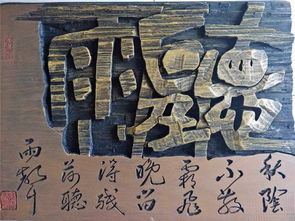 聽雨
秋陰
不散
霜飛
晚留
得殘
荷聽
雨聲